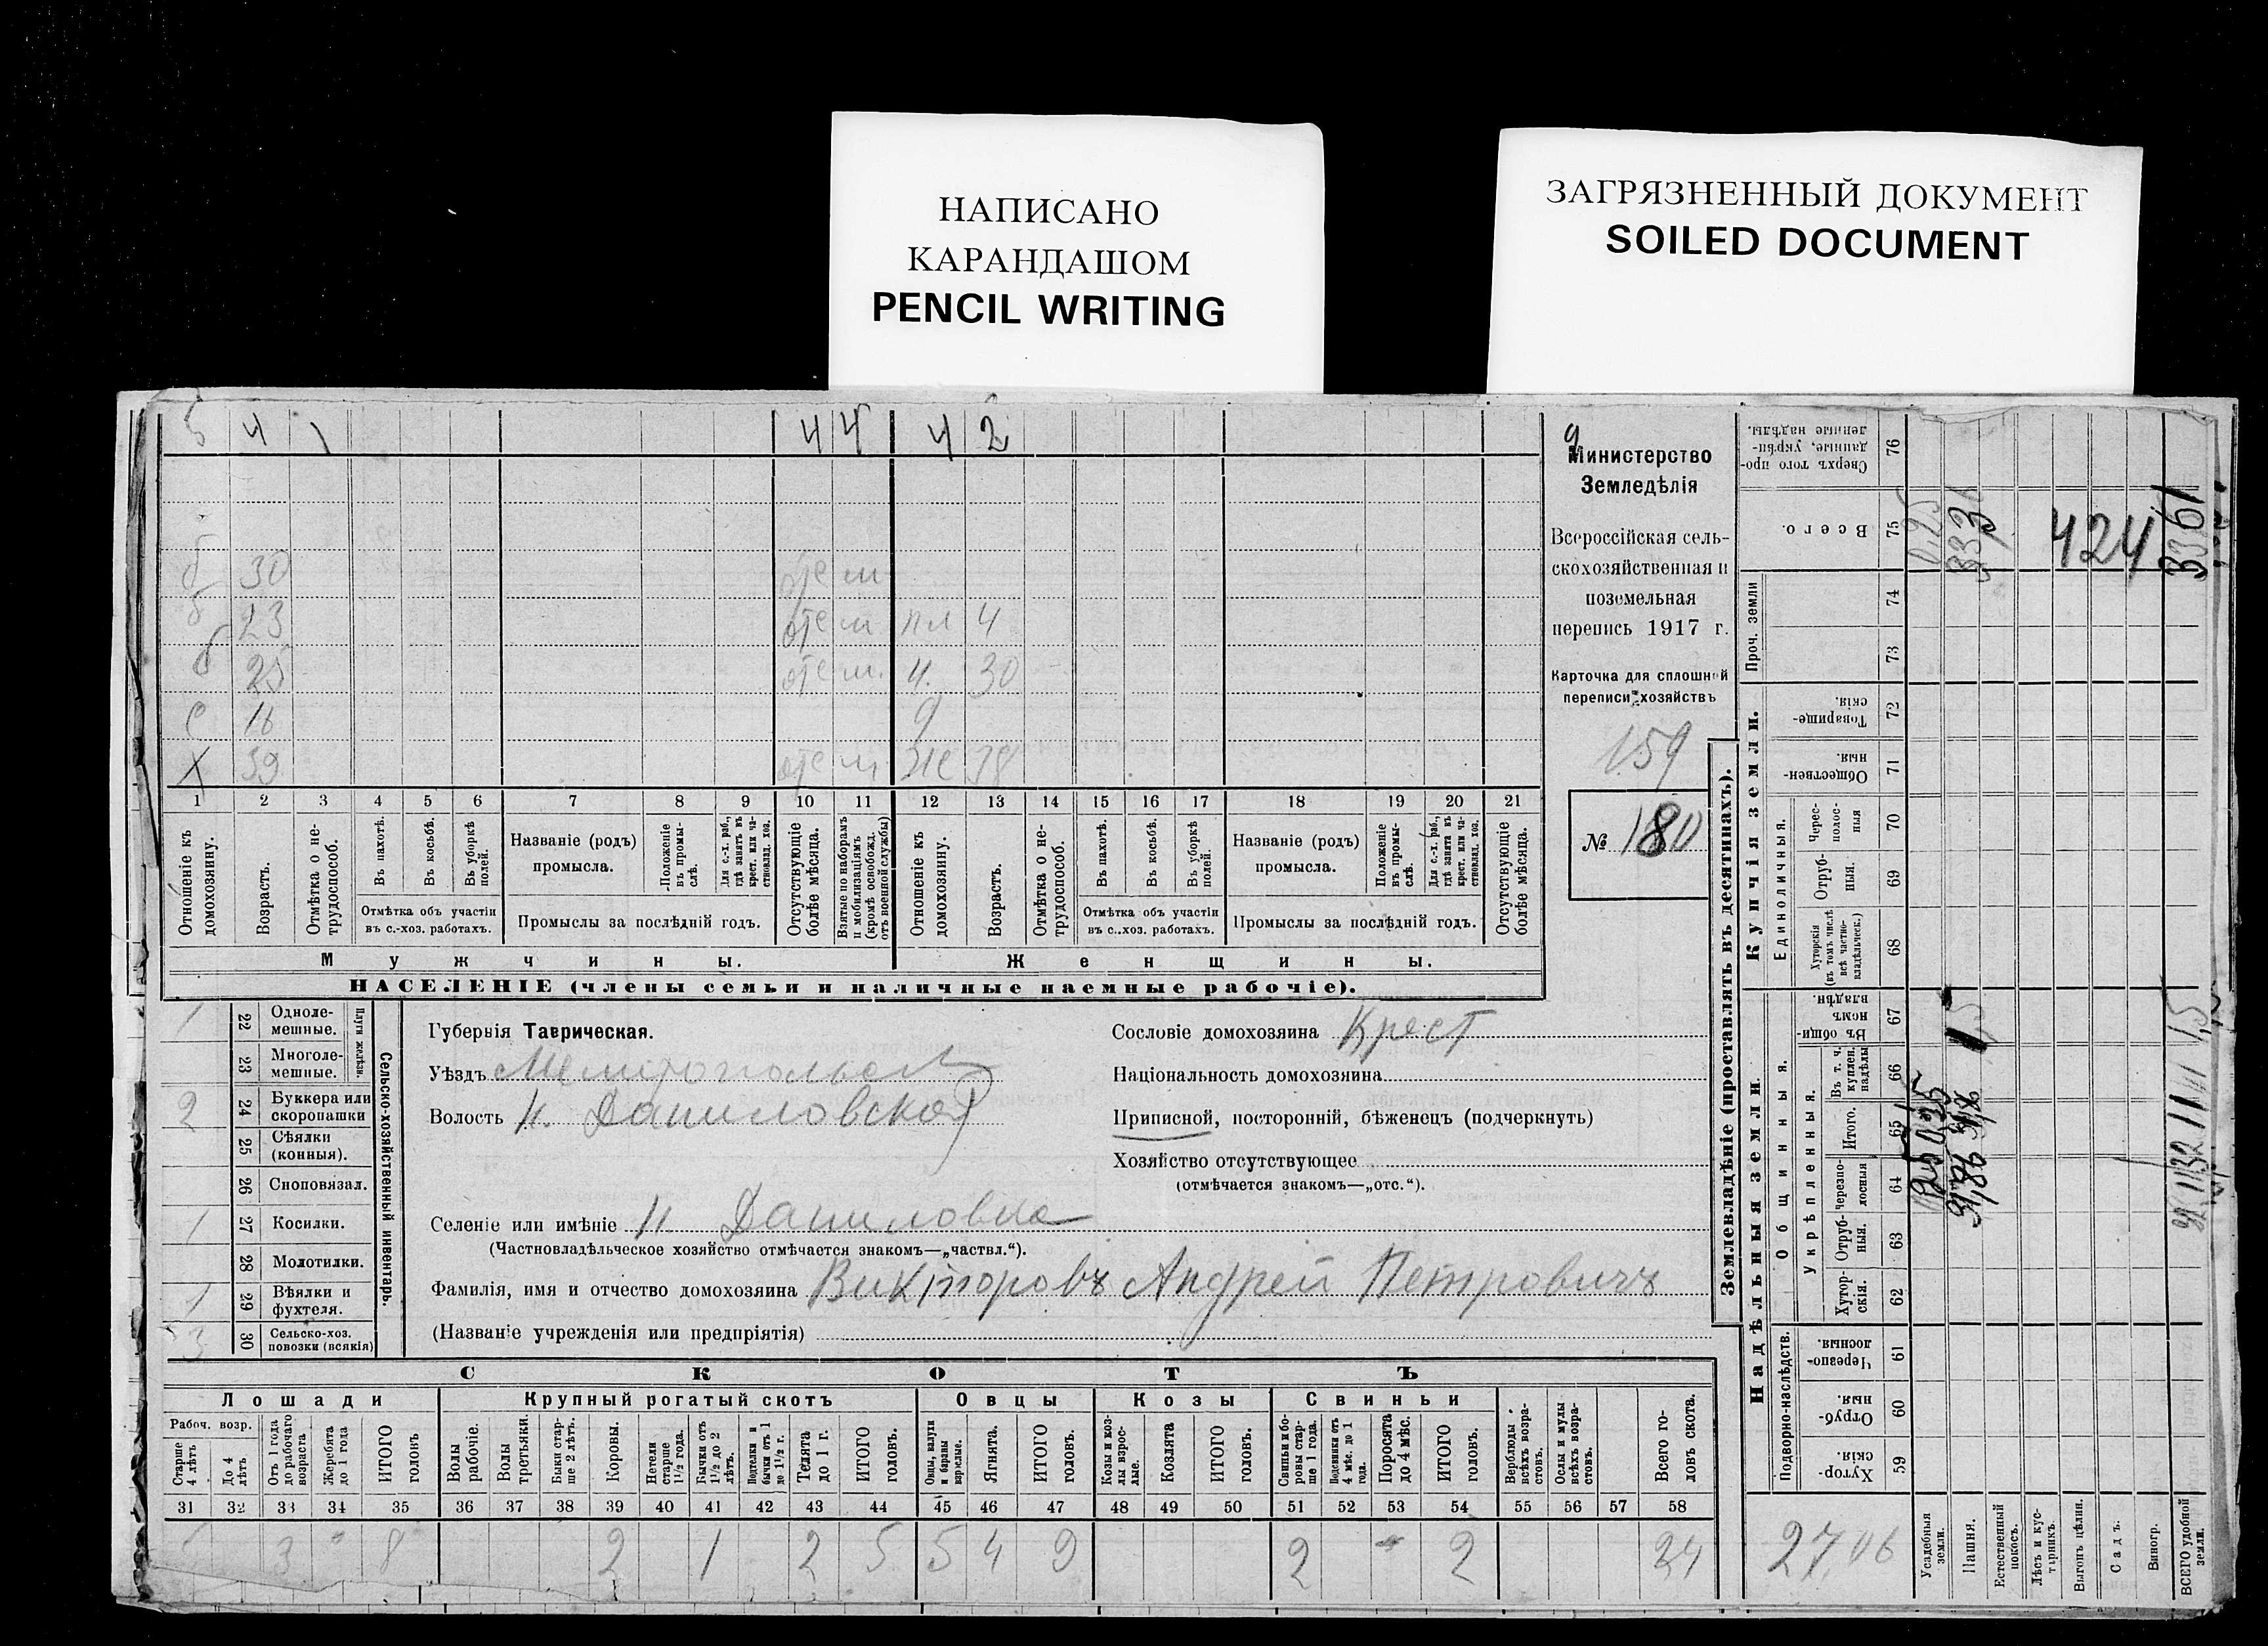 НАПИСАНО
КАРАНДАШОМ
PENCIL WRITING
ЗАГРЯЗНЕННЫЙ ДОКУМЕНТ
SOILED DOCUMENT
5 4 1 4 4 4 2
б 30 отс м
б 23 отс м пл 4
б 25 отс м. 4. 30
с 16 9
Х 39 отс м же 38
1 2 3 4 5 6 7 8 9 10 11 12 13 14 15 16 17 18 19 20 21
Отношеніе къ домохозяину.
Возрастъ.
Отмѣтка о не-трудоспособ.
Въ пахотѣ.
Въ косьбѣ.
Въ уборкѣ полей.
Отмѣтка объ участіи
въ с.-хоз. работахъ.
Названіе (родъ)
промысла.
Положеніе въ промы-слѣ.
Для с.-х. раб., гдѣ занятъ въ крест. или ча-стновлад. хоз.
Промыслы за послѣдній годъ.
Отсутствующіе болѣе мѣсяца.
Взятые по наборамъ и мобилизаціямъ (кромѣ освобожд. отъ военной службы)
Отношеніе къ домохозяину.
Возрастъ.
Отмѣтка о не-трудоспособ.
Въ пахотѣ.
Въ косьбѣ.
Въ уборкѣ полей.
Отмѣтка объ участіи
въ с.-хоз. работахъ.
Названіе (родъ)
промысла.
Положеніе въ промы-слѣ.
Для с.-х. раб., гдѣ занята въ крест. или ча-стновлад. хоз.
Промыслы за послѣдній годъ.
Отсутствующіе болѣе мѣсяца.
Мужчины.
Женщины.
НАСЕЛЕНІЕ (члены семьи и наличные наемные рабочіе).
9
Министерство
Земледѣлія
Всероссійская сель-
скохозяйственная и
поземельная
перепись 1917 г.
Карточка для сплошной
переписи хозяйствъ
159
№ 180
1 22 Одноле-мешные.
23 Многоле-мешные.
Плуги желѣзн.
2 24 Буккера или скоропашки
25 Сѣялки (конныя).
26 Сноповязал.
1 27 Косилки.
28 Молотилки.
1 29 Вѣялки и фухтеля.
3 30 Сельско-хоз. повозки (всякія)
Сельско-хозяйственный инвентарь.
Губернія Таврическая.
Уѣздъ Мелитопольск
Волость Н. Даниловская
Селеніе или имѣніе Н. Даниловка
(Частновладѣльческое хозяйство отмѣчается знакомъ—„частвл.“).
Фамилія, имя и отчество домохозяина Викторовъ Андрей Петровичъ
(Названіе учрежденія или предпріятія)
Сословіе домохозяина Крест
Національность домохозяина
Приписной, посторонній, бѣженецъ (подчеркнуть)
Хозяйство отсутствующее
(отмѣчается знакомъ—„отс.“).
СКОТЪ
Лошади
Крупный рогатый скотъ
Овцы
Козы
Свиньи
Рабоч. возр.
Старше 4 лѣтъ
До 4 лѣтъ
Отъ 1 года до рабочаго возраста
Жеребята до 1 года
ИТОГО головъ
Волы рабочіе.
Волы третьяки.
Быки стар-ше 2 лѣтъ.
Коровы.
Нетели старше 1½ года.
Бычки отъ 1½ до 2 лѣтъ.
Подтелки и бычки отъ 1 до 1½ г.
Телята до 1 г.
ИТОГО головъ.
Овцы, валухи и бараны взрослые.
Ягнята.
ИТОГО головъ.
Козы и коз-лы взрос-лые.
Козлята
ИТОГО головъ.
Свиньи и бо-ровы стар-ше 1 года.
Подсвинки отъ 4 мѣс. до 1 года.
Поросята до 4 мѣс.
ИТОГО головъ.
Верблюды всѣхъ возра-стовъ.
Ослы и мулы всѣхъ возра-стовъ.
Всего го-ловъ скота.
31 32 33 34 35 36 37 38 39 40 41 42 43 44 45 46 47 48 49 50 51 52 53 54 55 56 57 58
5 3 - 8 2 1 2 5 5 4 9 2 - 2 24
Землевладѣніе (проставлять въ десятинахъ).
Купчія земли.
Надѣльныя земли.
Сверхъ того про-данные, укрѣп-ленные надѣлы. 76
Всего. 75
Проч. земли
74
73
Товарище-скія. 72
Обществен-ныя. 71
Единоличныя.
Черес-полос-ныя 70
Отруб-ныя. 69
Хуторскія (въ томъ числѣ всѣ частно-владѣльческ.) 68
Общинныя.
Въ общин-номъ владѣн. 67
Укрѣпленныя.
Въ т. ч. куплен. надѣлы 66
Итого. 65
Черезпо-лосныя 64
Отруб-ныя. 63
Хутор-скія. 62
Подворно-наслѣдств.
Черезпо-лосныя 61
Отруб-ныя. 60
Хутор-скія. 59
Усадебныя земли.
Пашня.
Естественный покосъ.
Лѣсъ и кус-тарникъ.
Выгонъ цѣлин.
Садъ.
Виногр.
ВСЕГО удобной земли.
0,25
424
3361
1,5
27,06